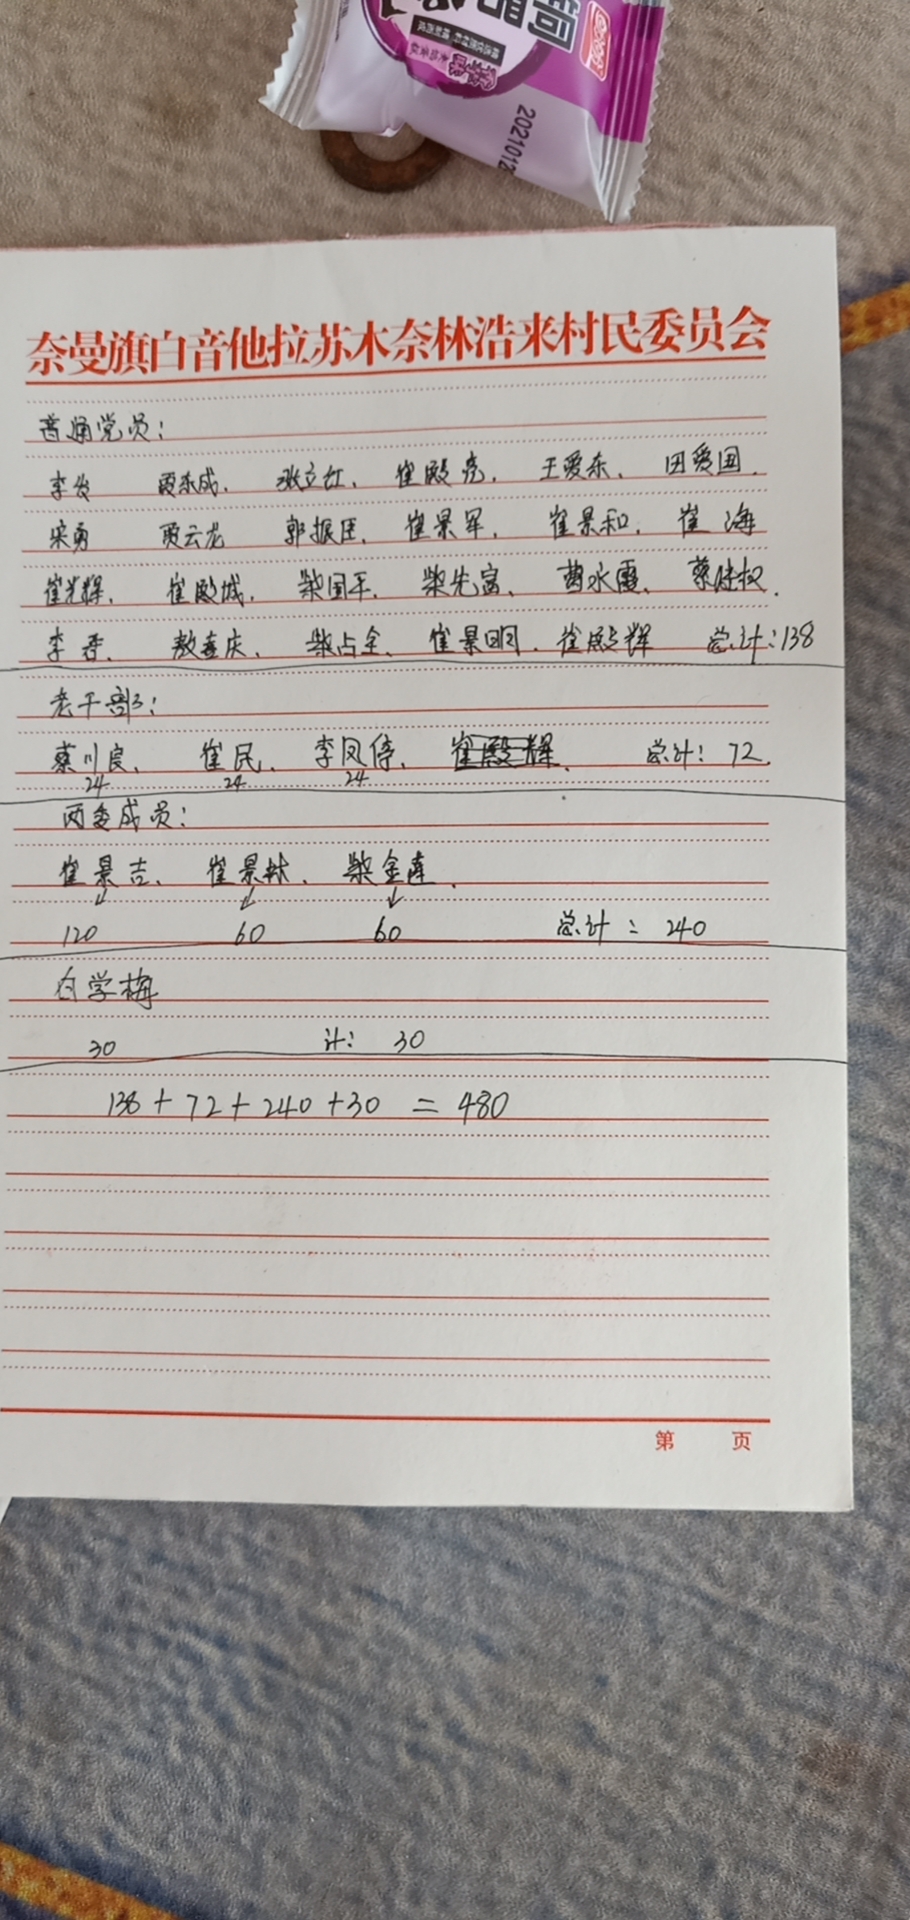 2021012
奈曼旗白音他拉苏木奈林浩来村民委员会
普通党员:
李发 贾东成、 张立红、 崔殿亮、 王爱东、 田爱国、
宋勇 贾云龙 郭振臣、 崔景军、 崔景和、 崔海
崔光辉、 崔殿城、 柴国军、 柴先富、 曹水霞、
李春、 敖喜庆、 柴占全、 崔景明、 崔殿辉 总计:138
老干部:
蔡川良、 崔民、 李凤停、 崔殿辉、 总计: 72.
24 24 24
两委成员:
崔景吉、 崔景林、 柴金莲、
120 60 60 总计: 240
白学梅
30 计: 30
138 + 72 + 240 + 30 = 480
第 页